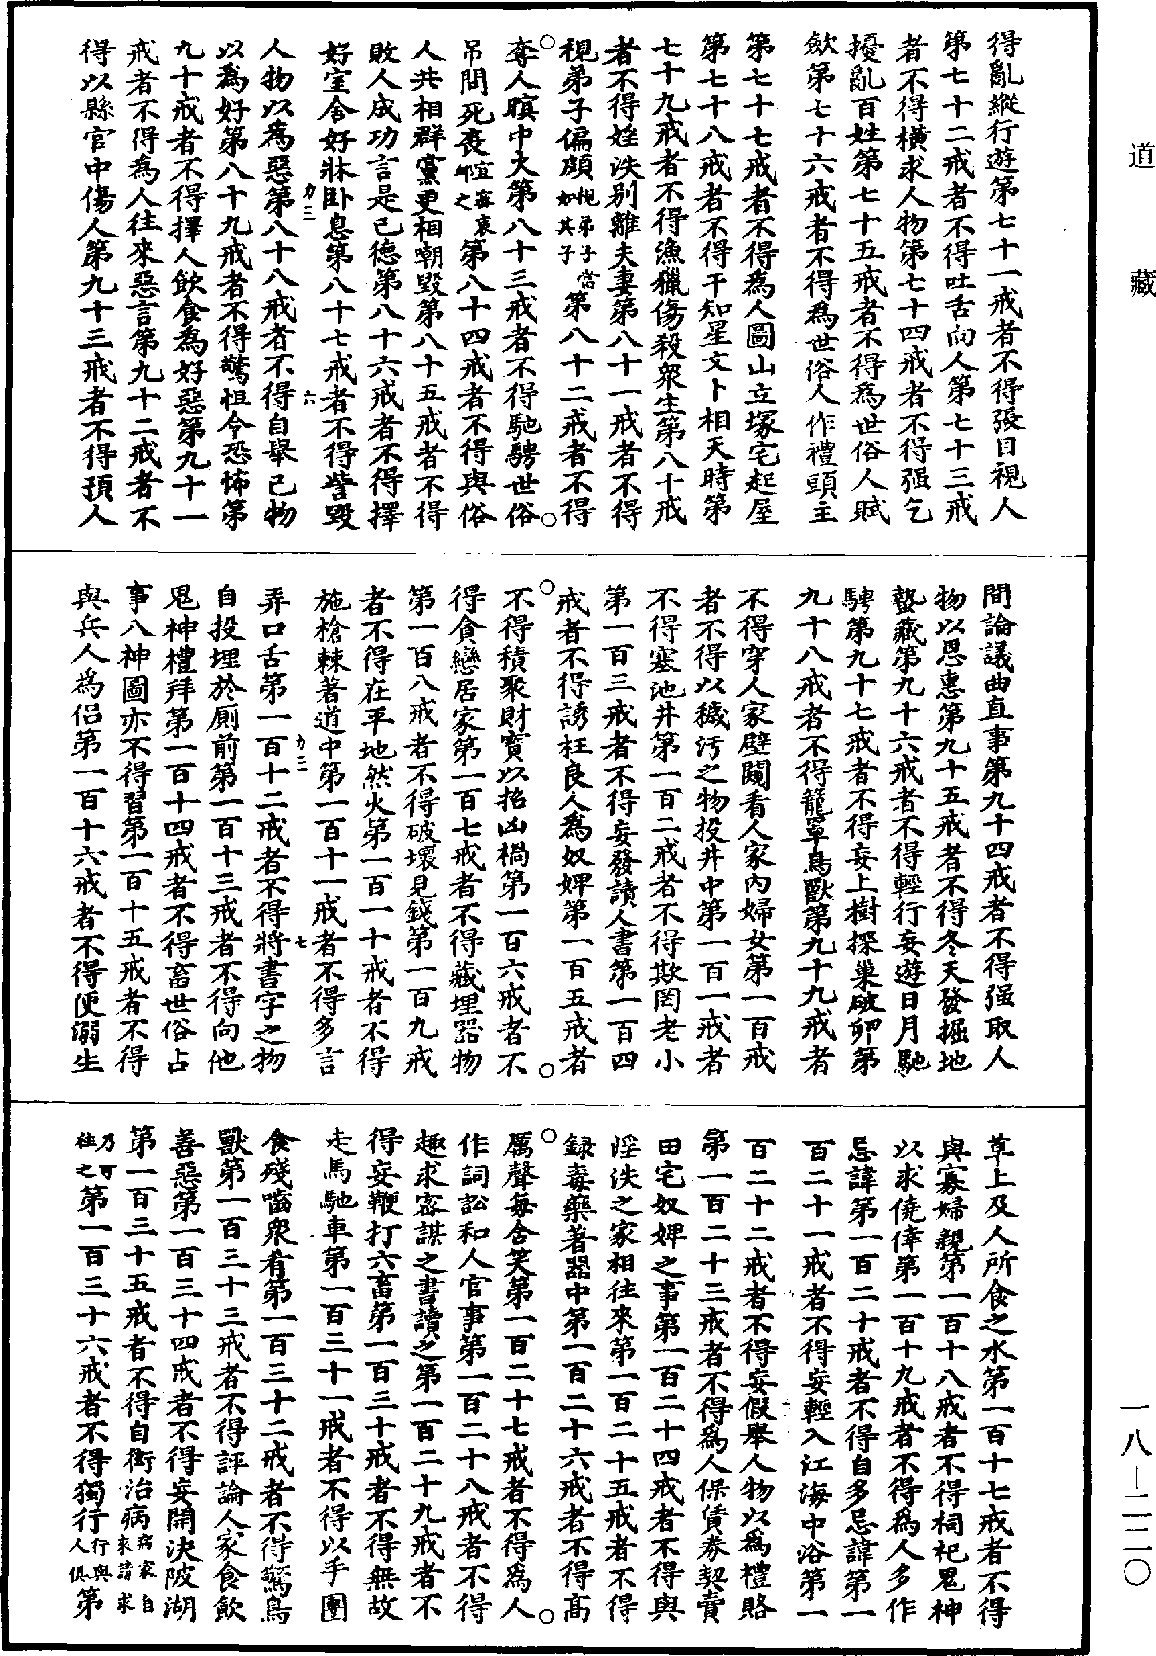 道藏
得亂縱行遊第七十一戒者不得張目視人
第七十二戒者不得吐舌向人第七十三戒
者不得橫求人物第七十四戒者不得强乞
擾亂百姓第七十五戒者不得為世俗人賦
歛第七十六戒者不得為世俗人作禮頭主
第七十七戒者不得為人圖山立塚宅起屋
第七十八戒者不得干知星文卜相天時第
七十九戒者不得漁獵傷殺衆生第八十戒
者不得婬泆別離夫妻第八十一戒者不得
視弟子偏頗視弟子當如其子第八十二戒者不得
奪人暝中火第八十三戒者不得馳騁世俗
吊問死喪宜密哀卹之第八十四戒者不得與俗
人共相群黨更相嘲毀第八十五戒者不得
敗人成功言是己德第八十六戒者不得擇
好室舍好牀卧息第八十七戒者不得訾毀
力三 六
人物以為惡第八十八戒者不得自舉己物
以為好第八十九戒者不得驚怛令恐怖第
九十戒者不得擇人飲食為好惡第九十一
戒者不得為人往來惡言第九十二戒者不
得以縣官中傷人第九十三戒者不得預人
間論議曲直事第九十四戒者不得强取人
物以恩惠第九十五戒者不得冬天發掘地
蟄藏第九十六戒者不得輕行妄遊日月馳
騁第九十七戒者不得妄上樹探巢破卵第
九十八戒者不得籠罩鳥獸第九十九戒者
不得穿人家壁闚看人家內婦女第一百戒
者不得以穢污之物投井中第一百一戒者
不得塞池井第一百二戒者不得欺罔老小
第一百三戒者不得妄發讀人書第一百四
戒者不得誘枉良人為奴婢第一百五戒者
不得積聚財寶以招凶禍第一百六戒者不
得貪戀居家第一百七戒者不得藏埋器物
第一百八戒者不得破壞見錢第一百九戒
者不得在平地然火第一百一十戒者不得
施槍棘著道中第一百十一戒者不得多言
力三 七
弄口舌第一百十二戒者不得將書字之物
自投埋於廁前第一百十三戒者不得向他
鬼神禮拜第一百十四戒者不得畜世俗占
事八神圖亦不得習第一百十五戒者不得
與兵人為侶第一百十六戒者不得便溺生
草上及人所食之水第一百十七戒者不得
與寡婦親第一百十八戒者不得祠祀鬼神
以求僥倖第一百十九戒者不得為人多作
忌諱第一百二十戒者不得自多忌諱第一
百二十一戒者不得妄輕入江海中浴第一
百二十二戒者不得妄假舉人物以為禮賂
第一百二十三戒者不得為人保賃券契賣
田宅奴婢之事第一百二十四戒者不得與
淫泆之家相往來第一百二十五戒者不得
録毒藥著器中第一百二十六戒者不得高
厲聲每含笑第一百二十七戒者不得為人
作詞訟和人官事第一百二十八戒者不得
趣求密謀之書讀之第一百二十九戒者不
得妄鞭打六畜第一百三十戒者不得無故
走馬馳車第一百三十一戒者不得以手團
食殘嚙衆肴第一百三十二戒者不得驚鳥
獸第一百三十三戒者不得評論人家食飲
善惡第一百三十四戒者不得妄開決陂湖
第一百三十五戒者不得自衒治病病家自來請求
乃可往之第一百三十六戒者不得獨行行與人俱第
一八—二二〇